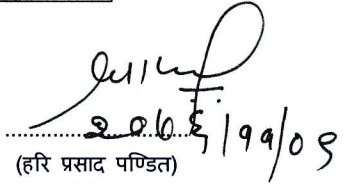 २०७६/११/०९
(हरि प्रसाद पण्डित)